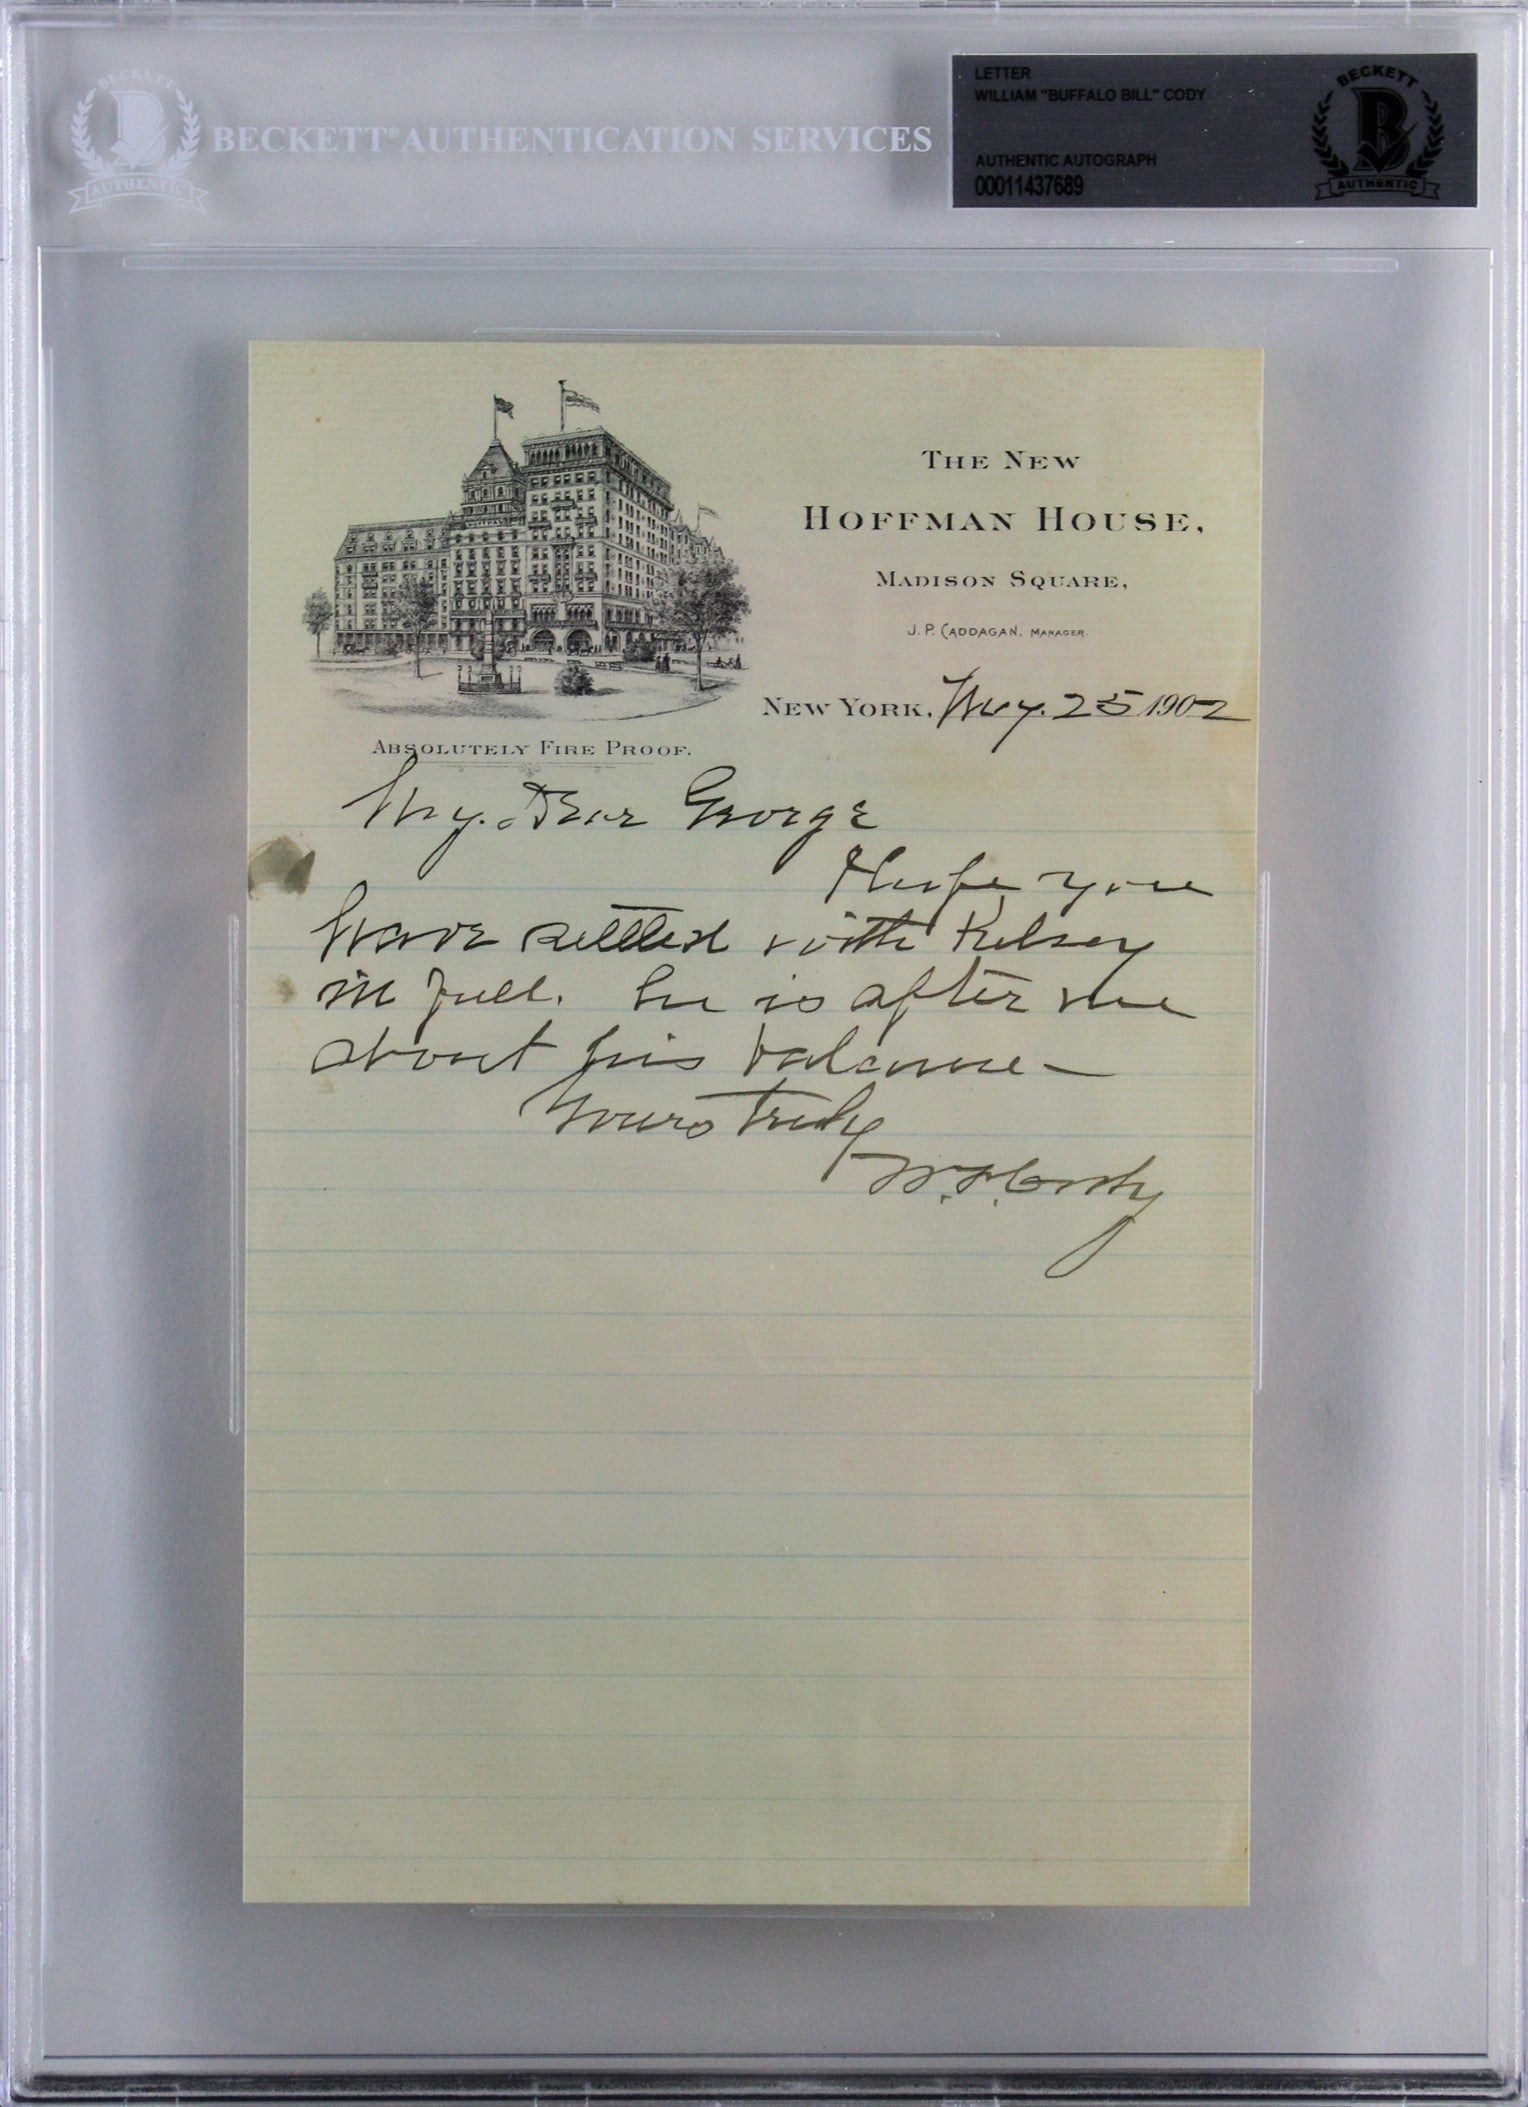 BECKETT
AUTHENTIC
BECKETT® AUTHENTICATION SERVICES
LETTER
WILLIAM "BUFFALO BILL" CODY
AUTHENTIC AUTOGRAPH
00011437689
BECKETT
AUTHENTIC
THE NEW
HOFFMAN HOUSE,
MADISON SQUARE,
J. P. CADDAGAN, MANAGER.
NEW YORK, May. 25 1902
ABSOLUTELY FIRE PROOF.
My. Dear George
Hope you
have settled with Kelsey
in full. he is after me
about his balance—
Yours Truly
W. F. Cody